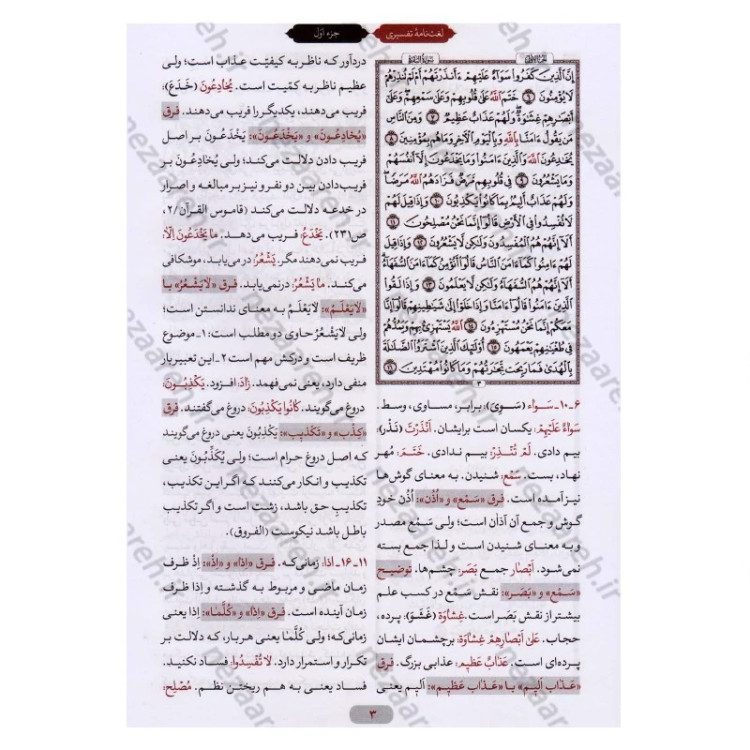 لغت‌نامهٔ تفسیری
جزء اوّل
إِنَّ الَّذِينَ كَفَرُوا سَوَاءٌ عَلَيْهِمْ ءَأَنذَرْتَهُمْ أَمْ لَمْ تُنذِرْهُمْ
لَا يُؤْمِنُونَ ٦ خَتَمَ اللَّهُ عَلَىٰ قُلُوبِهِمْ وَعَلَىٰ سَمْعِهِمْ وَعَلَىٰ
أَبْصَارِهِمْ غِشَاوَةٌ وَلَهُمْ عَذَابٌ عَظِيمٌ ٧ وَمِنَ النَّاسِ
مَن يَقُولُ ءَامَنَّا بِاللَّهِ وَبِالْيَوْمِ الْآخِرِ وَمَا هُم بِمُؤْمِنِينَ ٨
يُخَادِعُونَ اللَّهَ وَالَّذِينَ ءَامَنُوا وَمَا يَخْدَعُونَ إِلَّا أَنفُسَهُمْ
وَمَا يَشْعُرُونَ ٩ فِي قُلُوبِهِم مَّرَضٌ فَزَادَهُمُ اللَّهُ مَرَضًا
وَلَهُمْ عَذَابٌ أَلِيمٌ بِمَا كَانُوا يَكْذِبُونَ ١٠ وَإِذَا قِيلَ لَهُمْ
لَا تُفْسِدُوا فِي الْأَرْضِ قَالُوا إِنَّمَا نَحْنُ مُصْلِحُونَ ١١
أَلَا إِنَّهُمْ هُمُ الْمُفْسِدُونَ وَلَٰكِن لَّا يَشْعُرُونَ ١٢ وَإِذَا قِيلَ
لَهُمْ ءَامِنُوا كَمَا ءَامَنَ النَّاسُ قَالُوا أَنُؤْمِنُ كَمَا ءَامَنَ السُّفَهَاءُ
أَلَا إِنَّهُمْ هُمُ السُّفَهَاءُ وَلَٰكِن لَّا يَعْلَمُونَ ١٣ وَإِذَا لَقُوا
الَّذِينَ ءَامَنُوا قَالُوا ءَامَنَّا وَإِذَا خَلَوْا إِلَىٰ شَيَاطِينِهِمْ قَالُوا إِنَّا
مَعَكُمْ إِنَّمَا نَحْنُ مُسْتَهْزِءُونَ ١٤ اللَّهُ يَسْتَهْزِئُ بِهِمْ وَيَمُدُّهُمْ
فِي طُغْيَانِهِمْ يَعْمَهُونَ ١٥ أُولَٰئِكَ الَّذِينَ اشْتَرَوُا الضَّلَالَةَ
بِالْهُدَىٰ فَمَا رَبِحَت تِّجَارَتُهُمْ وَمَا كَانُوا مُهْتَدِينَ ١٦
۳
۶ ـ ۱۰ ـ سَواء (سَوِیَ): برابر، مساوی، وسط.
سَوآءٌ عَلَیْهِمْ: یکسان است برایشان. أَنْذَرْتَ (نَذَرَ):
بیم دادی. لَمْ تُنْذِرْ: بیم ندادی. خَتَمَ: مُهر
نهاد، بست. سَمْع: شنیدن. به معنای گوش‌ها
نیز آمده است. فرق «سَمْع» و «أُذُن»: أُذُن خود
گوش و جمع آن آذان است؛ ولی سَمْع مصدر
و به معنای شنیدن است و لذا جمع بسته
نمی‌شود. أَبْصَار جمع بَصَر: چشم‌ها. توضیح
«سَمْع» و «بَصَر»: نقش سَمْع در کسب علم
بیشتر از نقش بَصَر است. غِشاوَة (غَشَوَ): پرده،
حجاب. عَلَىٰ أَبْصارِهِمْ غِشاوَةٌ: برچشمان ایشان
پرده‌ای است. عَذَابٌ عَظیم: عذابی بزرگ. فرق
«عَذابٌ أَلیم» با «عَذاب عَظیم»: أَلیم یعنی
دردآور که ناظر به کیفیّت عذاب است؛ ولی
عظیم ناظر به کمّیت است. یُخادِعُونَ (خَدَعَ):
فریب می‌دهند، یکدیگر را فریب می‌دهند. فرق
«یُخادِعُونَ» و «یَخْدَعُونَ»: یَخْدَعُونَ بر اصل
فریب دادن دلالت می‌کند؛ ولی یُخادِعُونَ بر
فریب‌دادن بین دو نفر و نیز بر مبالغه و اصرار
در خدعه دلالت می‌کند (قاموس القرآن/۲،
ص۲۳۱). یَخْدَعُ: فریب می‌دهد. ما یَخْدَعُونَ إلّا:
فریب نمی‌دهند مگر. یَشْعُرُ: در می‌یابد، موشکافی
می‌کند. ما یَشْعُرُ: درنمی‌یابد. فرق «لایَشْعُرُ» با
«لایَعْلَمُ»: لایَعْلَمُ به معنای ندانستن است؛
ولی لایَشْعُرُ حاوی دو مطلب است: ۱ـ موضوع
ظریف است و درکش مهم است ۲ـ این تعبیر بار
منفی دارد، یعنی نمی‌فهمد. زادَ: افزود. یَکْذِبُونَ:
دروغ می‌گویند. کانُوا یَکْذِبُونَ: دروغ می‌گفتند. فرق
«کِذْب» و «تَکْذیب»: یَکْذِبُونَ یعنی دروغ می‌گویند
که اصل دروغ حرام است؛ ولی یُکَذِّبُونَ یعنی
تکذیب و انکار می‌کنند که اگر این تکذیب،
تکذیبِ حق باشد، زشت است و اگر تکذیب
باطل باشد نیکوست (الفروق).
۱۱ ـ ۱۶ ـ اذا: زمانی‌که. فرق «إذا» و «إذْ»: إِذْ ظرف
زمان ماضی و مربوط به گذشته و إذا ظرف
زمان آینده است. فرق «إذا» و «کُلَّمَا»: إذا یعنی
زمانی‌که؛ ولی کُلَّمَا یعنی هربار، که دلالت بر
تکرار و استمرار دارد. لا تُفْسِدُوا: فساد نکنید.
فساد یعنی به هم ریختن نظم. مُصْلِح:
۳
nezaareh.ir